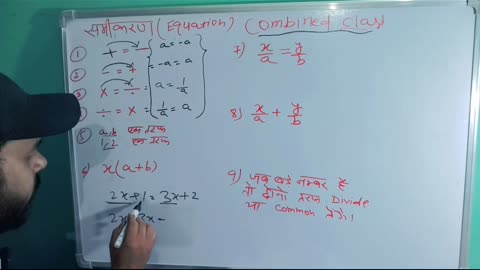 समीकरण (Equation) Combined Class
① + = − a = -a
② − = + -a = a
③ × = ÷ a = 1/a
④ ÷ = × 1/a = a
⑤ a, b एक तरफ
1, 2 एक तरफ
6) x(a+b)
2x+1 = 3x+2
2x 3x =
7) x/a = y/b
8) x/a + y/b
9) जब बड़े नम्बर है
तो दोनो तरफ Divide
या Common लेंगे।